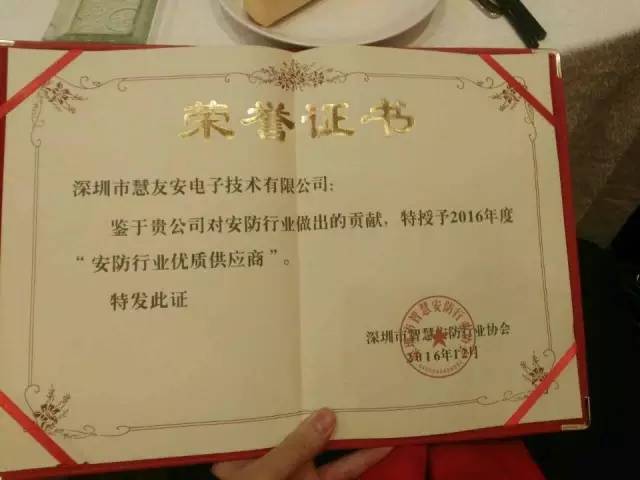 荣誉证书
深圳市慧友安电子技术有限公司：
鉴于贵公司对安防行业做出的贡献，特授予2016年度
“安防行业优质供应商”。
特发此证
深圳市智慧安防行业协会
深圳市智慧安防行业协会
2016年12月